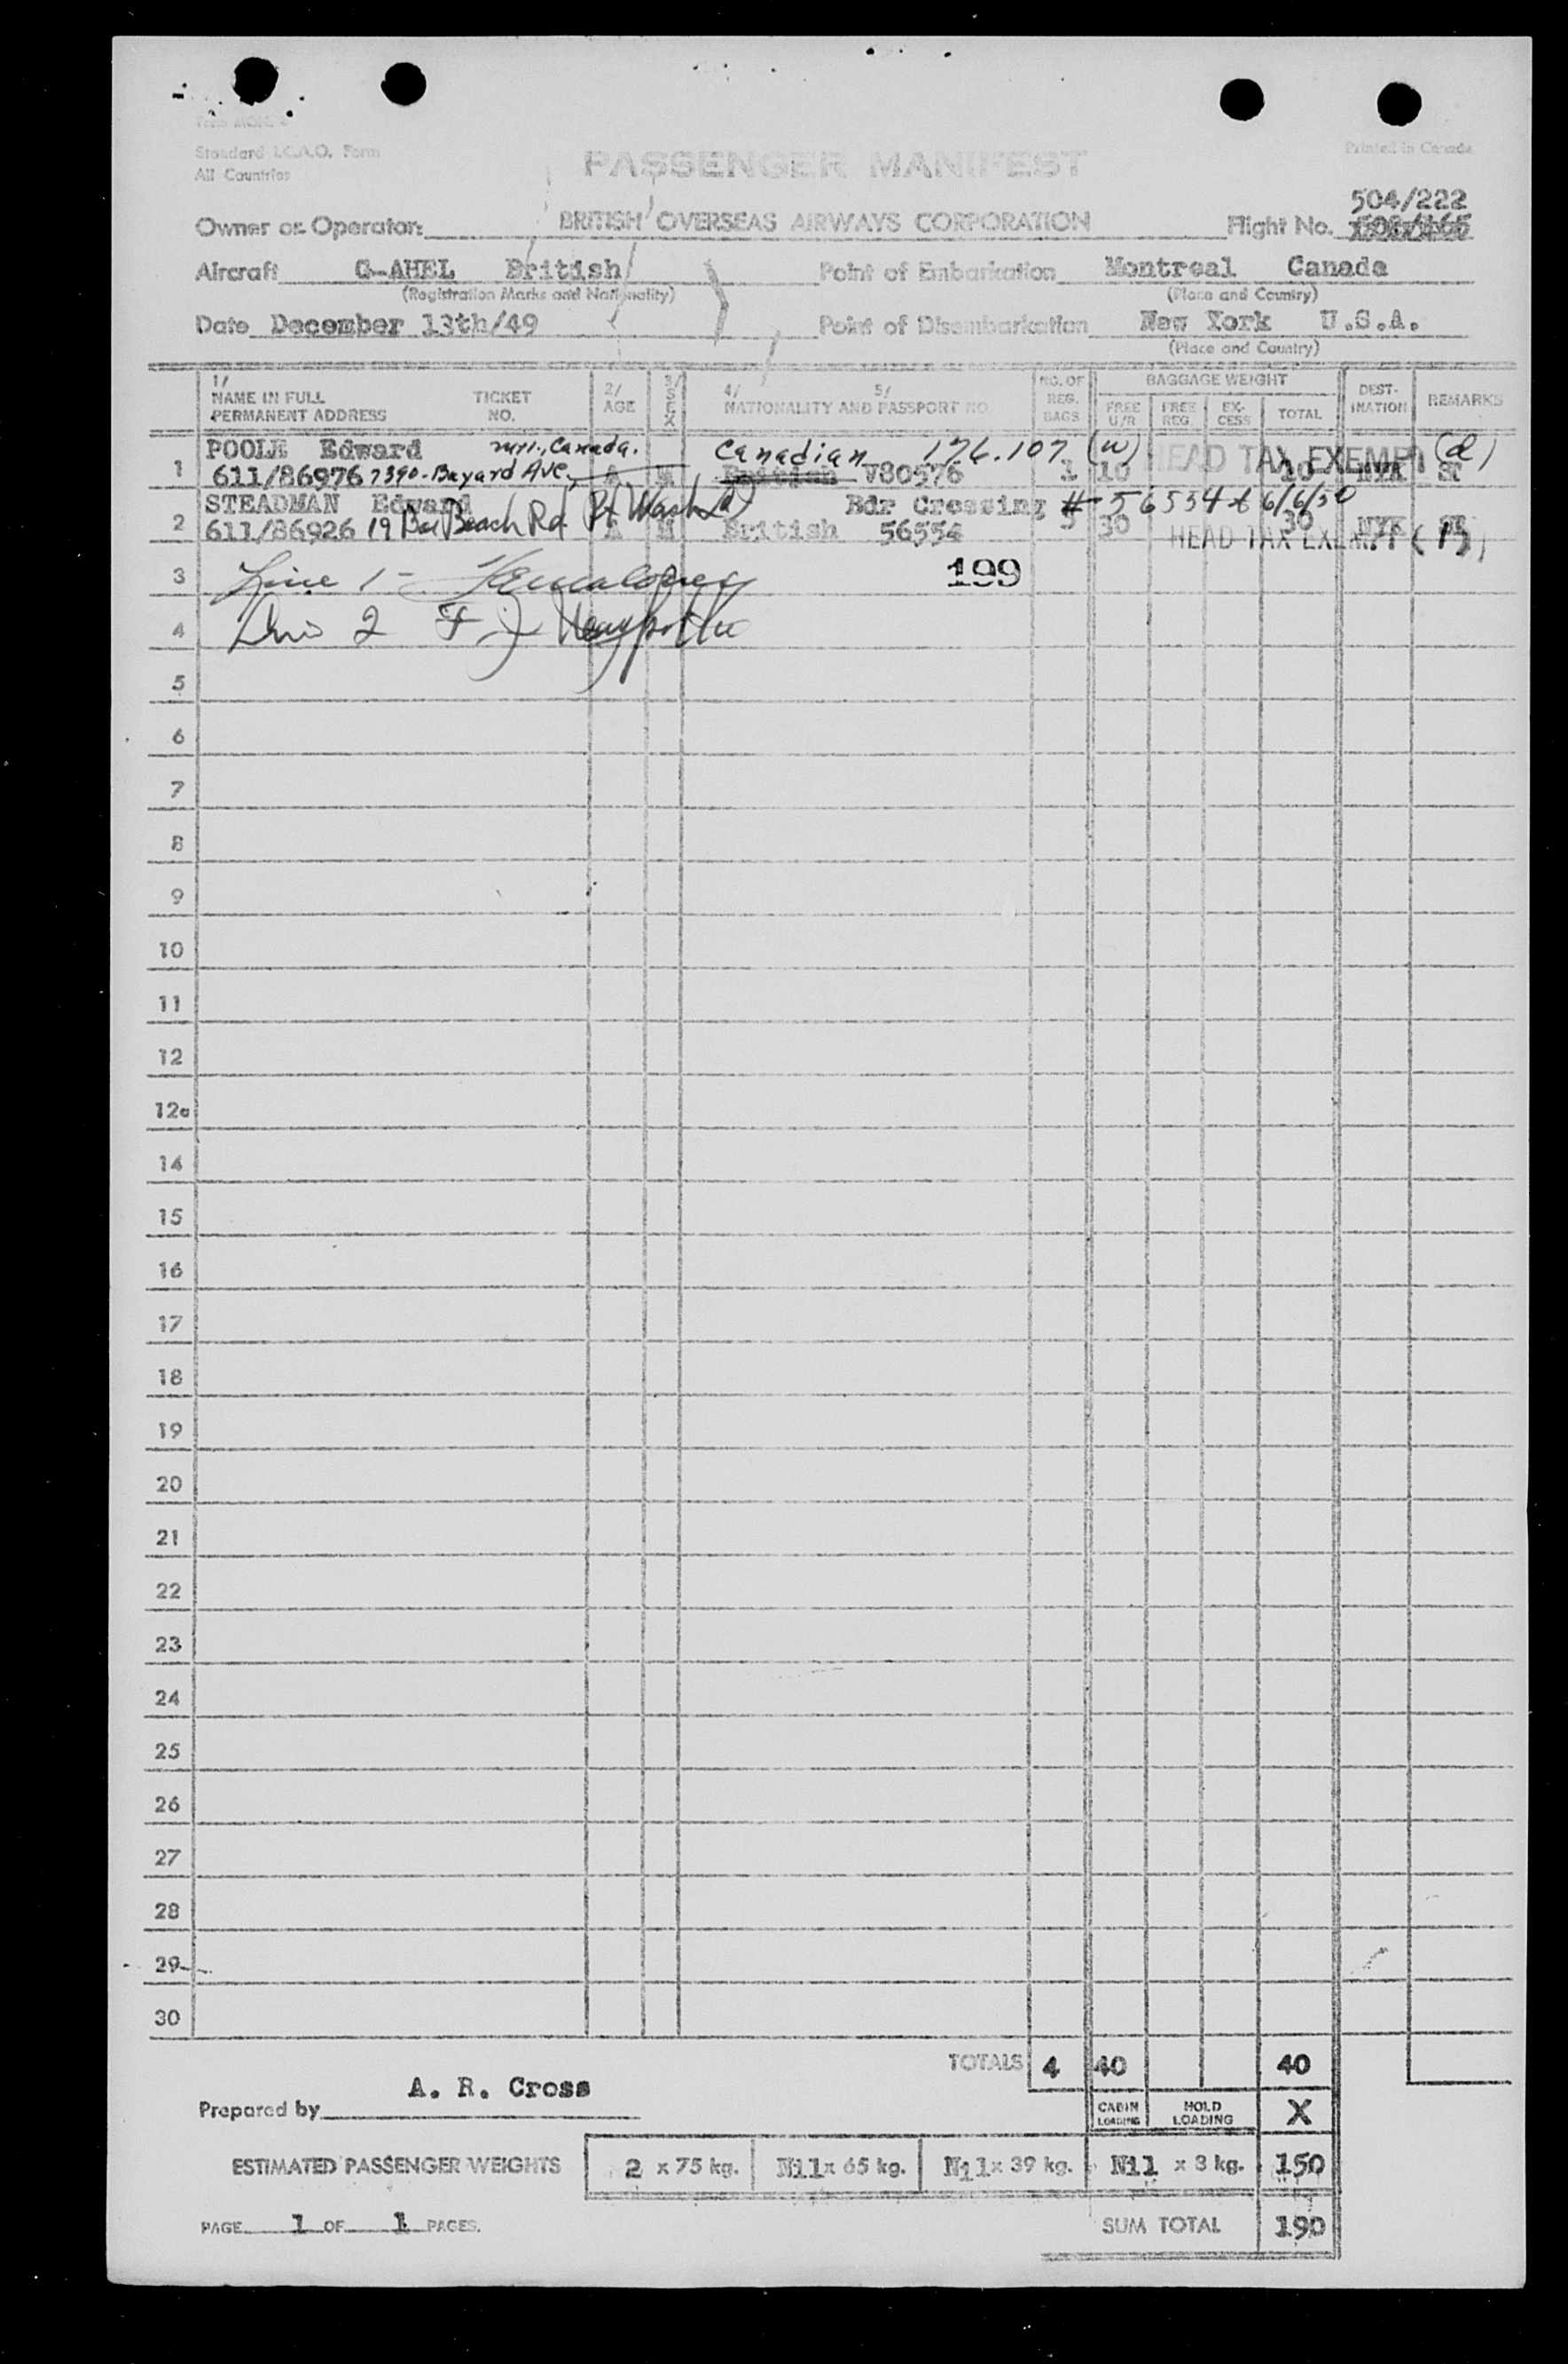 Standard I.C.A.O. Form
All Countries
Printed in Canada
PASSENGER MANIFEST
504/222
Owner or Operator: BRITISH OVERSEAS AIRWAYS CORPORATION Flight No.
Aircraft G-AHEL British Point of Embarkation Montreal Canada
(Registration Marks and Nationality) (Place and Country)
Date December 13th/49 Point of Disembarkation New York U.S.A.
(Place and Country)
1/ NAME IN FULL PERMANENT ADDRESS TICKET NO. 2/ AGE 3/ SEX 4/ 5/ NATIONALITY AND PASSPORT NO. NO. OF REG. BAGS BAGGAGE WEIGHT FREE U/R FREE REG. EX-CESS TOTAL DEST-INATION REMARKS
POOLE Edward Canada. Canadian 176.107 (W) HEAD TAX EXEMPT (d)
1 611/86976 7390-Bayard Ave, A M British V80576 1 10 10 NYK
STEADMAN Edward Bdr Crossing # 56534 6/6/50
2 611/86926 19 Bar Beach Rd Pt Wash A M British 56554 3 30 30 NYK
HEAD TAX EXEMPT
3 Line 1 - 199
4 Line 2 F. J.
5
6
7
8
9
10
11
12
12a
14
15
16
17
18
19
20
21
22
23
24
25
26
27
28
29
30
TOTALS 4 40 40
A. R. Cross
Prepared by CABIN LOADING HOLD LOADING X
ESTIMATED PASSENGER WEIGHTS 2 x 75 kg. Nil x 65 kg. Nil x 39 kg. Nil x 8 kg. 150
PAGE 1 OF 1 PAGES. SUM TOTAL 190